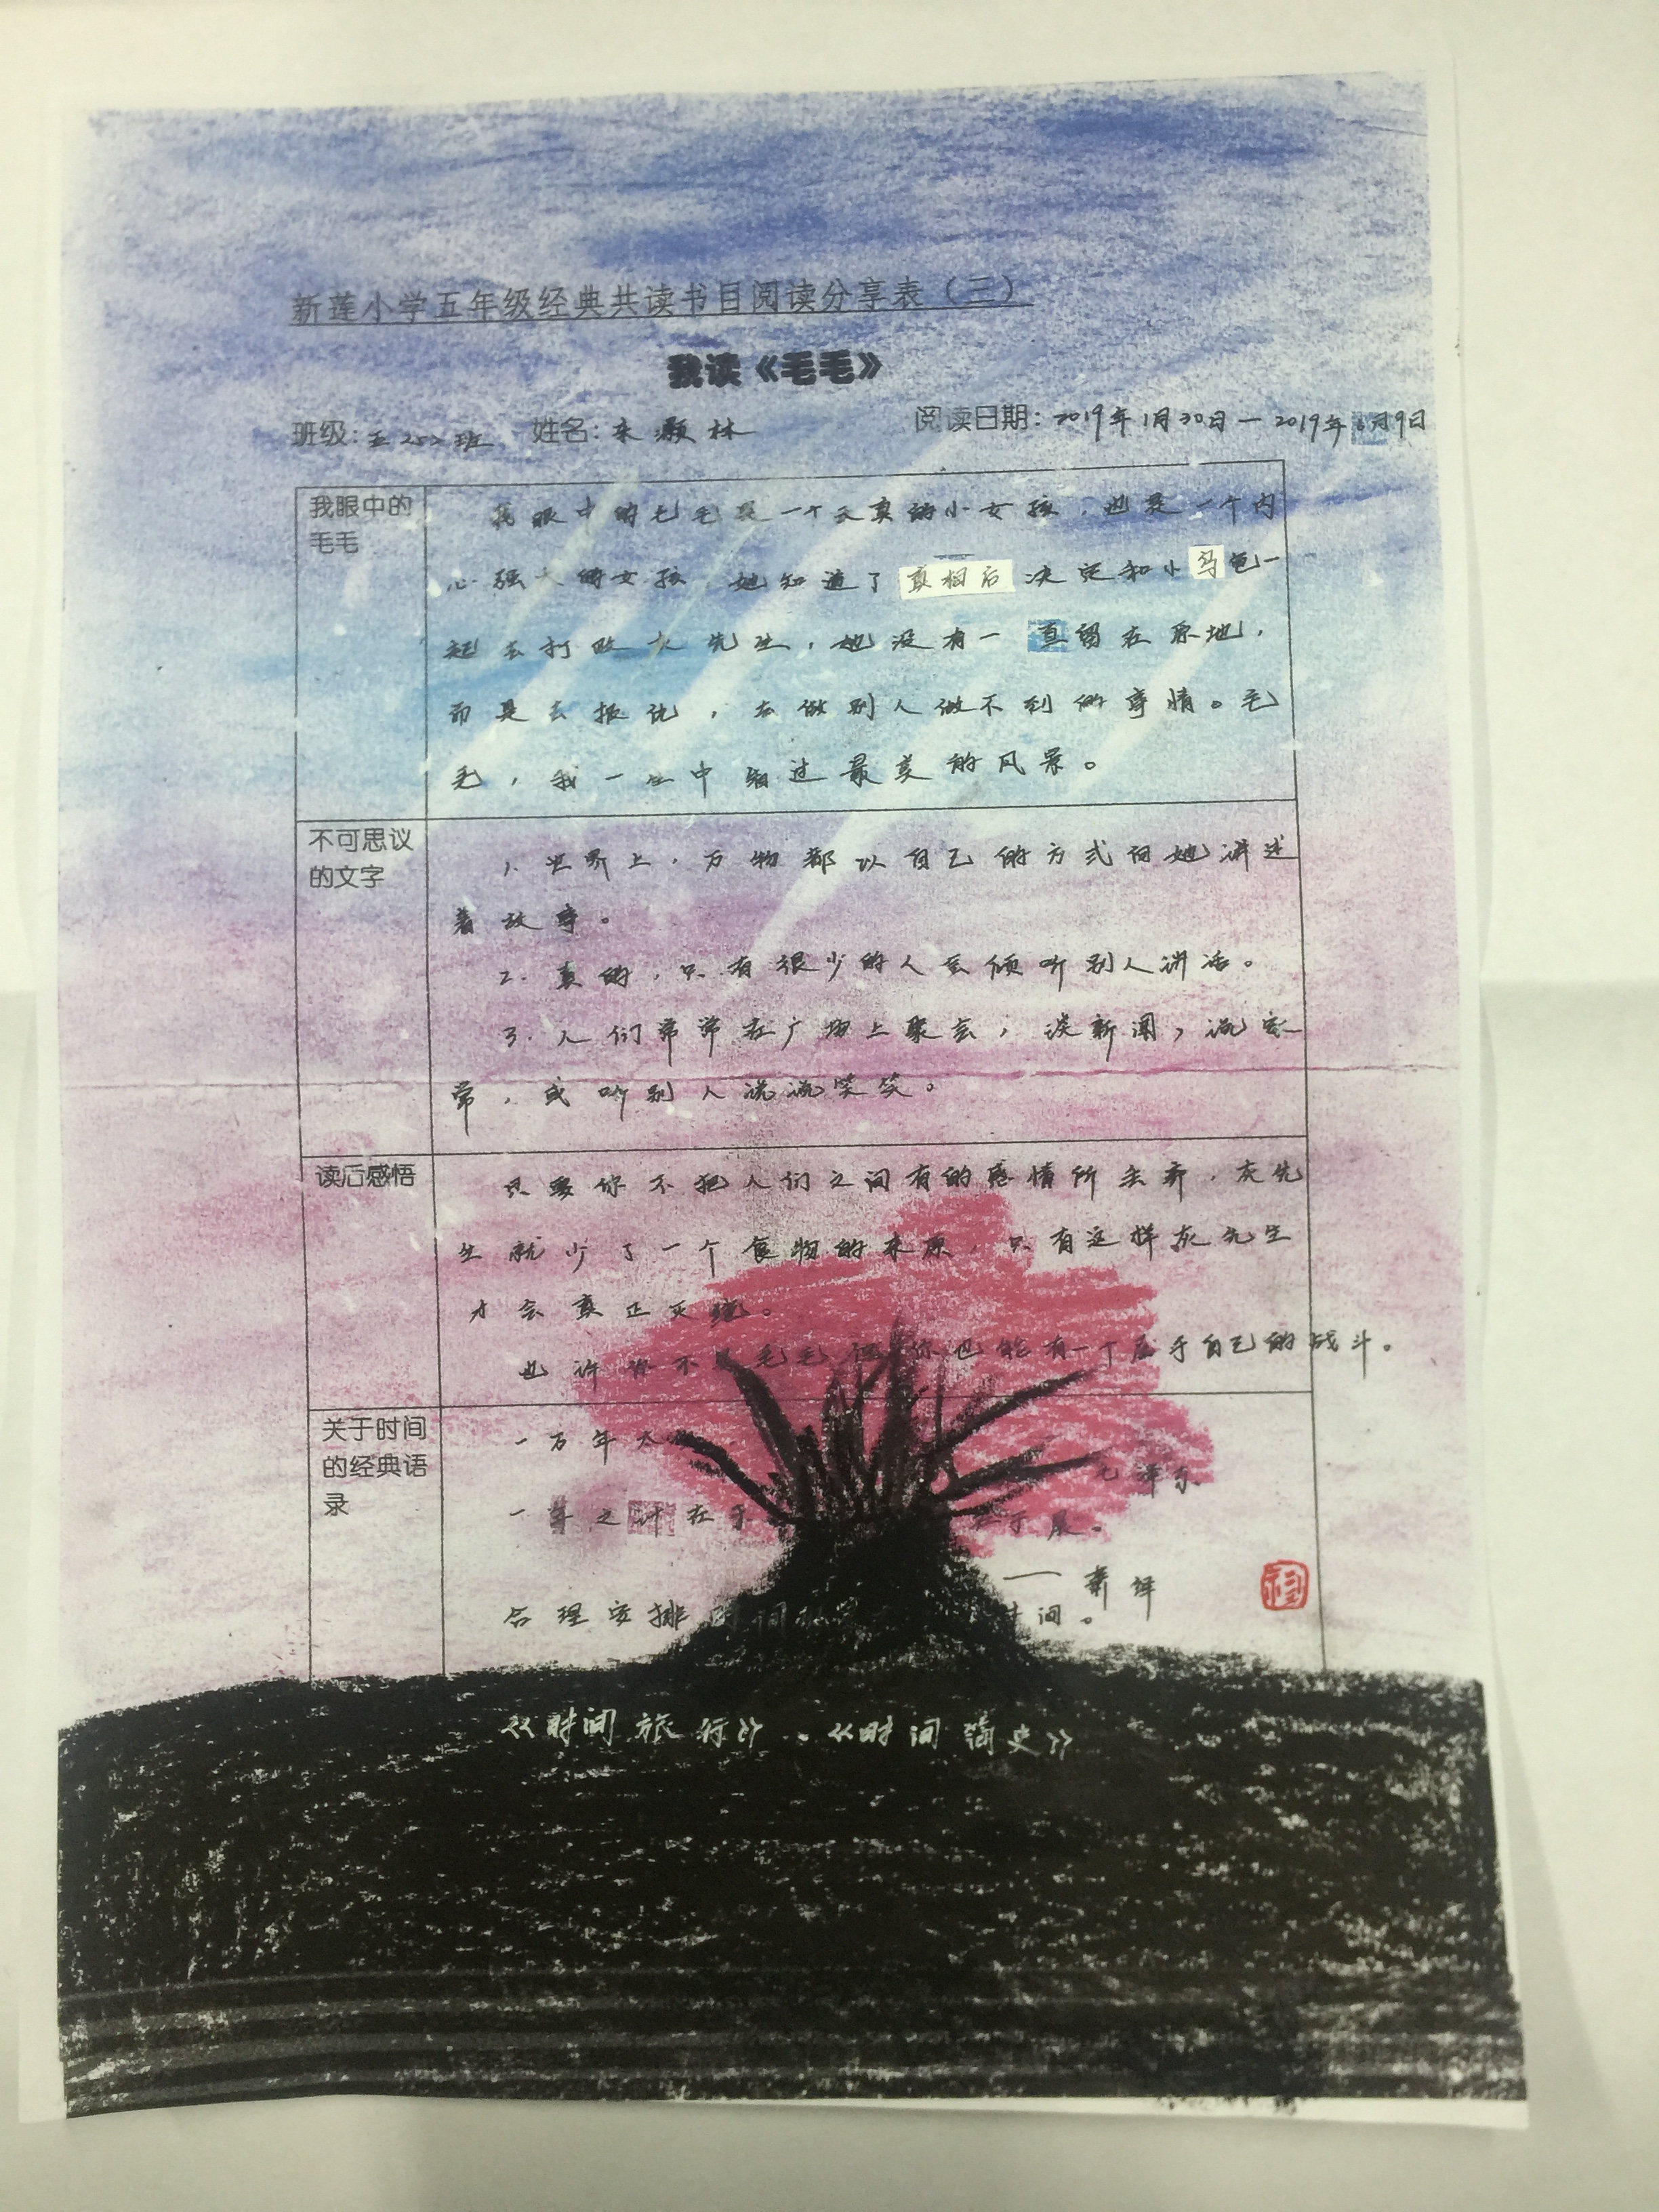 新莲小学五年级经典共读书目阅读分享表（三）
我读《毛毛》
班级：五252班 姓名：灏林 阅读日期：2019年1月30日—2019年月9日
我眼中的
毛毛
我眼中的毛毛是一个天真的小女孩，也是一个内
心强大的女孩，她知道了真相后决定和小乌龟一
起去打败灰先生，她没有一直留在原地，
而是去抵抗，去做别人做不到的事情。毛
毛，我一生中看过最美的风景。
不可思议
的文字
1. 世界上，万物都以自己的方式向她讲述
着故事。
2. 真的，只有很少的人会倾听别人讲话。
3. 人们常常在广场上聚会，谈新闻，说家
常，或听别人说说笑笑。
读后感悟
只要你不把人们之间有的感情所丢弃，灰先
生就少了一个食物的来原，只有这样灰先生
才会真正灭绝。
也许你不是毛毛 但你也能有一个属于自己的战斗。
关于时间
的经典语
录
一万年太
毛泽东
一年之计在于 于晨。
——萧绎
合理安排时间 时间。
《时间旅行》、《时间简史》